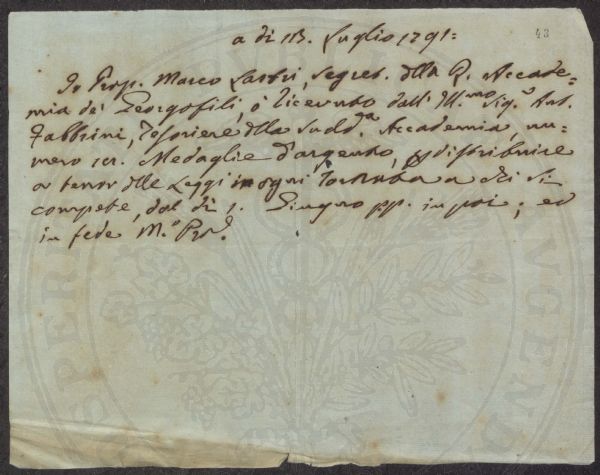 43
a dì 13. Luglio 1791:
Io Prop. Marco Lastri, Segret. della R. Accade-
mia de' Georgofili, ò ricevuto dall' Ill.mo Sig.r Ant.
Fabbrini, Tesoriere della Sudd.a Accademia, nu-
mero 101. Medaglie d'argento, p distribuire
a tenor delle Leggi in ogni Tornata a chi si
compete, dal dì 1. Giugno pp. in poi; ed
in fede M.o P.o
PROSPERITATI AUGENDAE